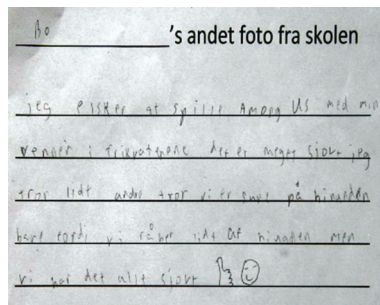 Bo 's andet foto fra skolen
jeg elsker at spille Among Us med min
venner i frikvaterene det er meget sjovt jeg
tror lidt andre tror vi er sure på hinanden
bare fordi vi råber lidt af hinaden men
vi har det alle sjovt